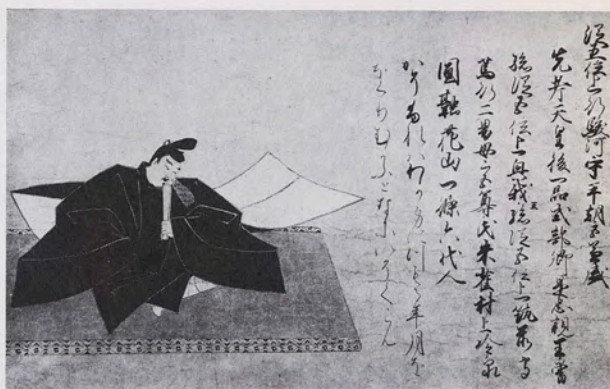 從五位上行駿河守平朝臣兼盛
光孝天皇後一品式部卿是忠親王曾
孫從五位上興我王孫從五位上筑前守
篤行二男母 朱雀村上冷泉
圓融花山一條六代人
かそふれはわかみにつもる年月を
おくりむかふとなにいそくらん